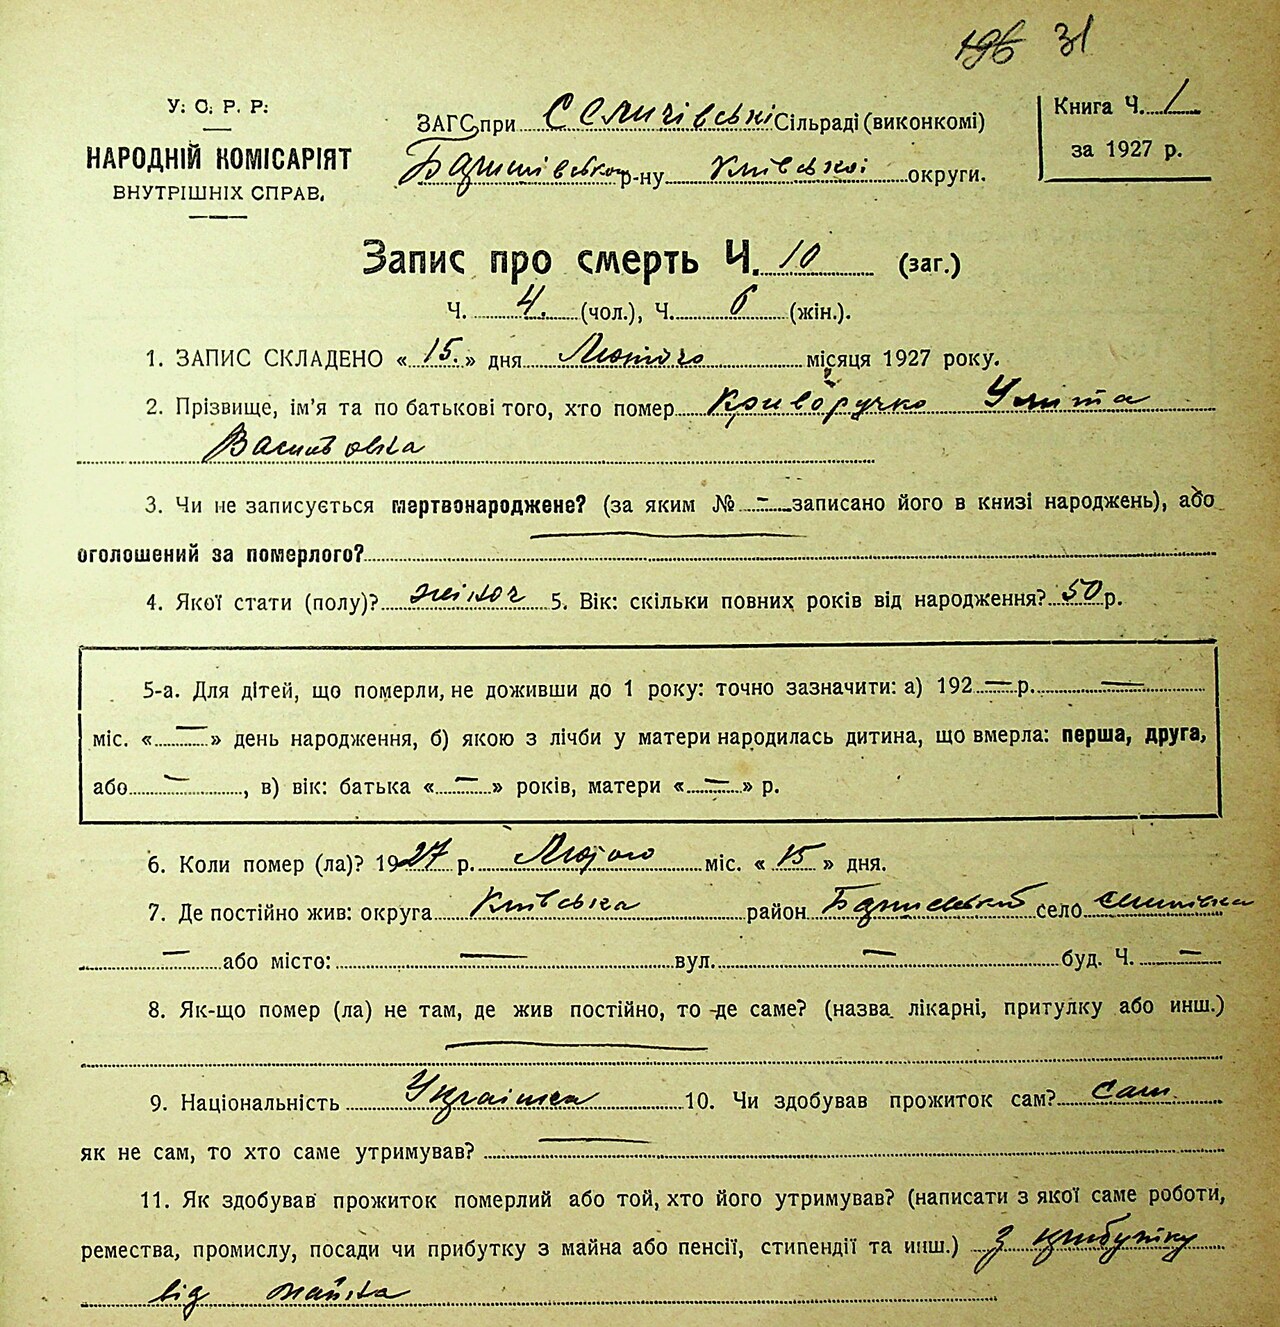 196 31
У. С. Р. Р.
НАРОДНІЙ КОМІСАРІЯТ
ВНУТРІШНІХ СПРАВ.
ЗАГС при Семичівські Сільраді (виконкомі)
р-ну Київської округи.
Книга Ч. 1
за 1927 р.
Запис про смерть Ч. 10 (заг.)
Ч. 4. (чол.), Ч. 6 (жін.).
1. ЗАПИС СКЛАДЕНО «15.» дня Лютого місяця 1927 року.
2. Прізвище, ім'я та по батькові того, хто помер Криворучко Улита
Васильовна
3. Чи не записується мертвонароджене? (за яким № — записано його в книзі народжень), або
оголошений за померлого?
4. Якої стати (полу)? жіноч 5. Вік: скільки повних років від народження? 50 р.
5-а. Для дітей, що померли, не доживши до 1 року: точно зазначити: а) 192 — р. —
міс. « — » день народження, б) якою з лічби у матери народилась дитина, що вмерла: перша, друга,
або — , в) вік: батька « — » років, матери « — » р.
6. Коли помер (ла)? 1927 р. Лютого міс. « 15 » дня.
7. Де постійно жив: округа Київська район село
— або місто: — вул. — буд. Ч. —
8. Як-що помер (ла) не там, де жив постійно, то де саме? (назва лікарні, притулку або инш.)
—
9. Національність Українка 10. Чи здобував прожиток сам? сам.
як не сам, то хто саме утримував? —
11. Як здобував прожиток померлий або той, хто його утримував? (написати з якої саме роботи,
ремества, промислу, посади чи прибутку з майна або пенсії, стипендії та инш.) з прибутку
від майна